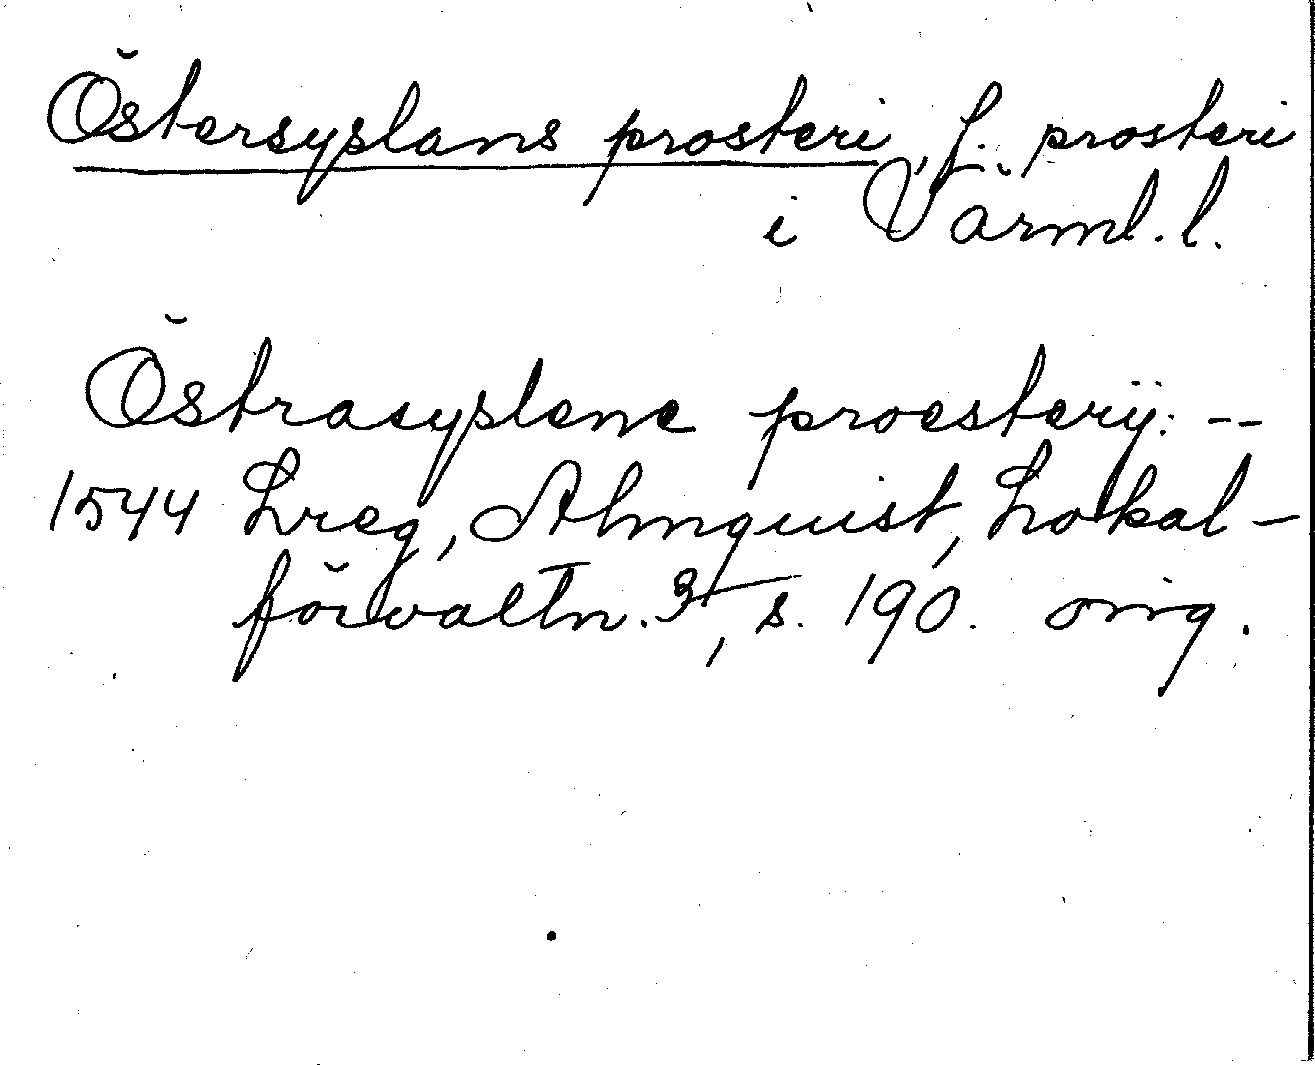 Östersyslans prosteri, f. prosteri
i Värml. l.
Östrasyslene proestery: --
1544 Lreg, Almquist, Lokal-
förvaltn. 3, s. 190. orig.